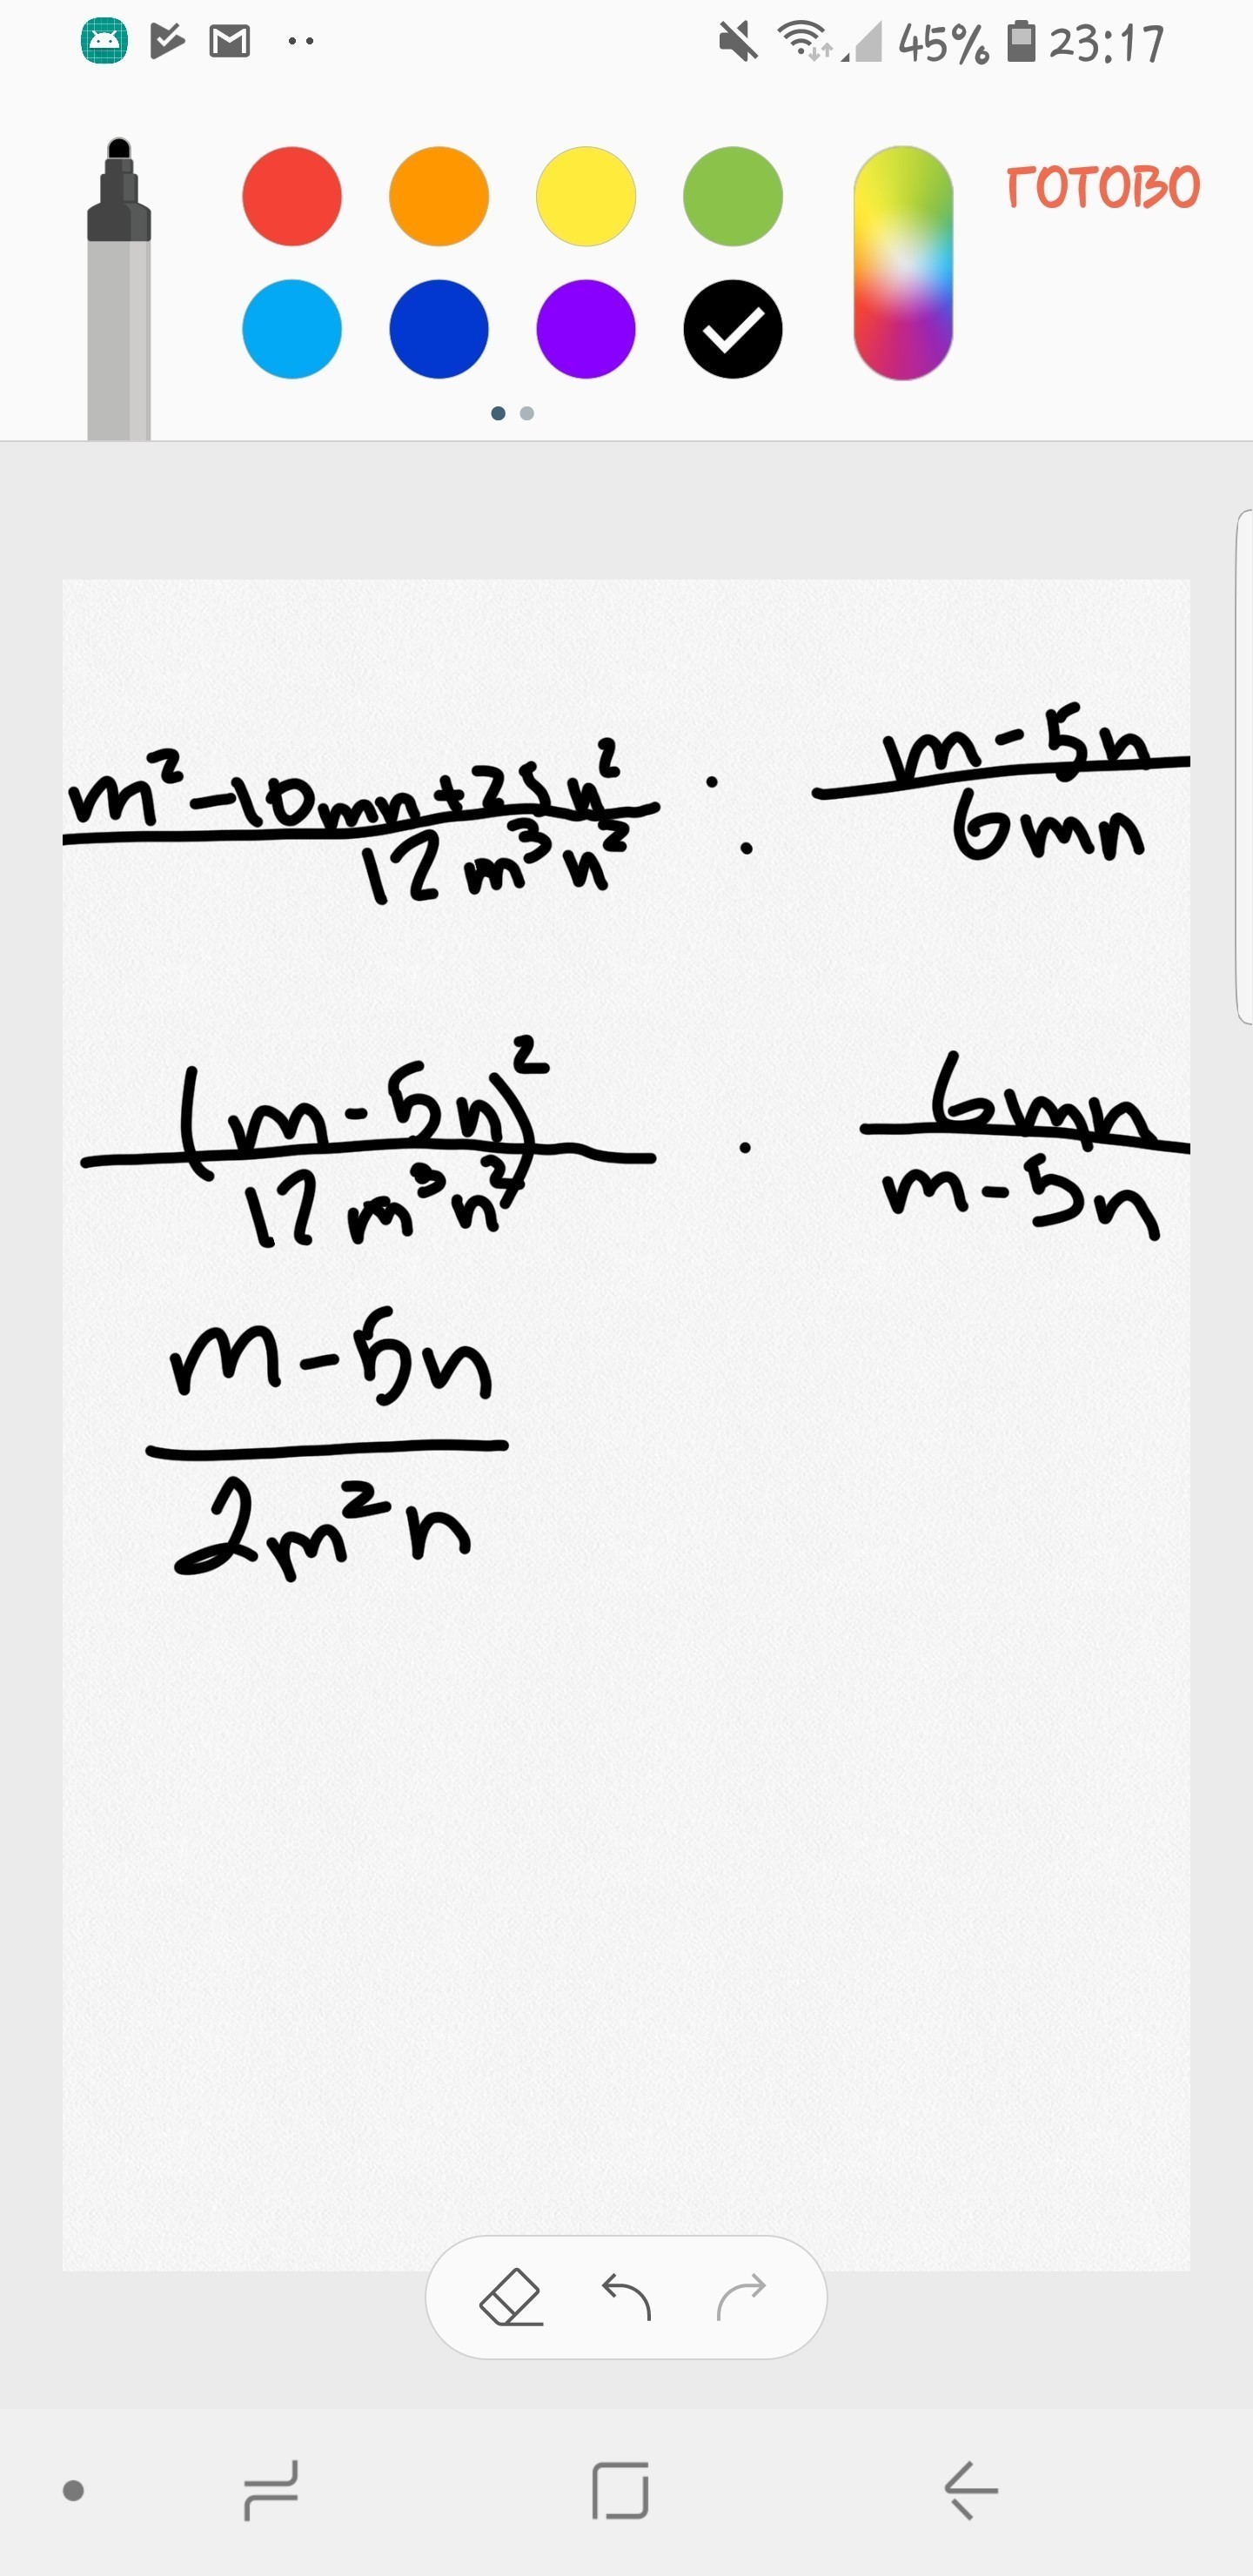 45% 23:17
ГОТОВО
m² - 10mn + 25n² / 12m³n² : m - 5n / 6mn
(m - 5n)² / 12m³n² · 6mn / m - 5n
m - 5n / 2m²n